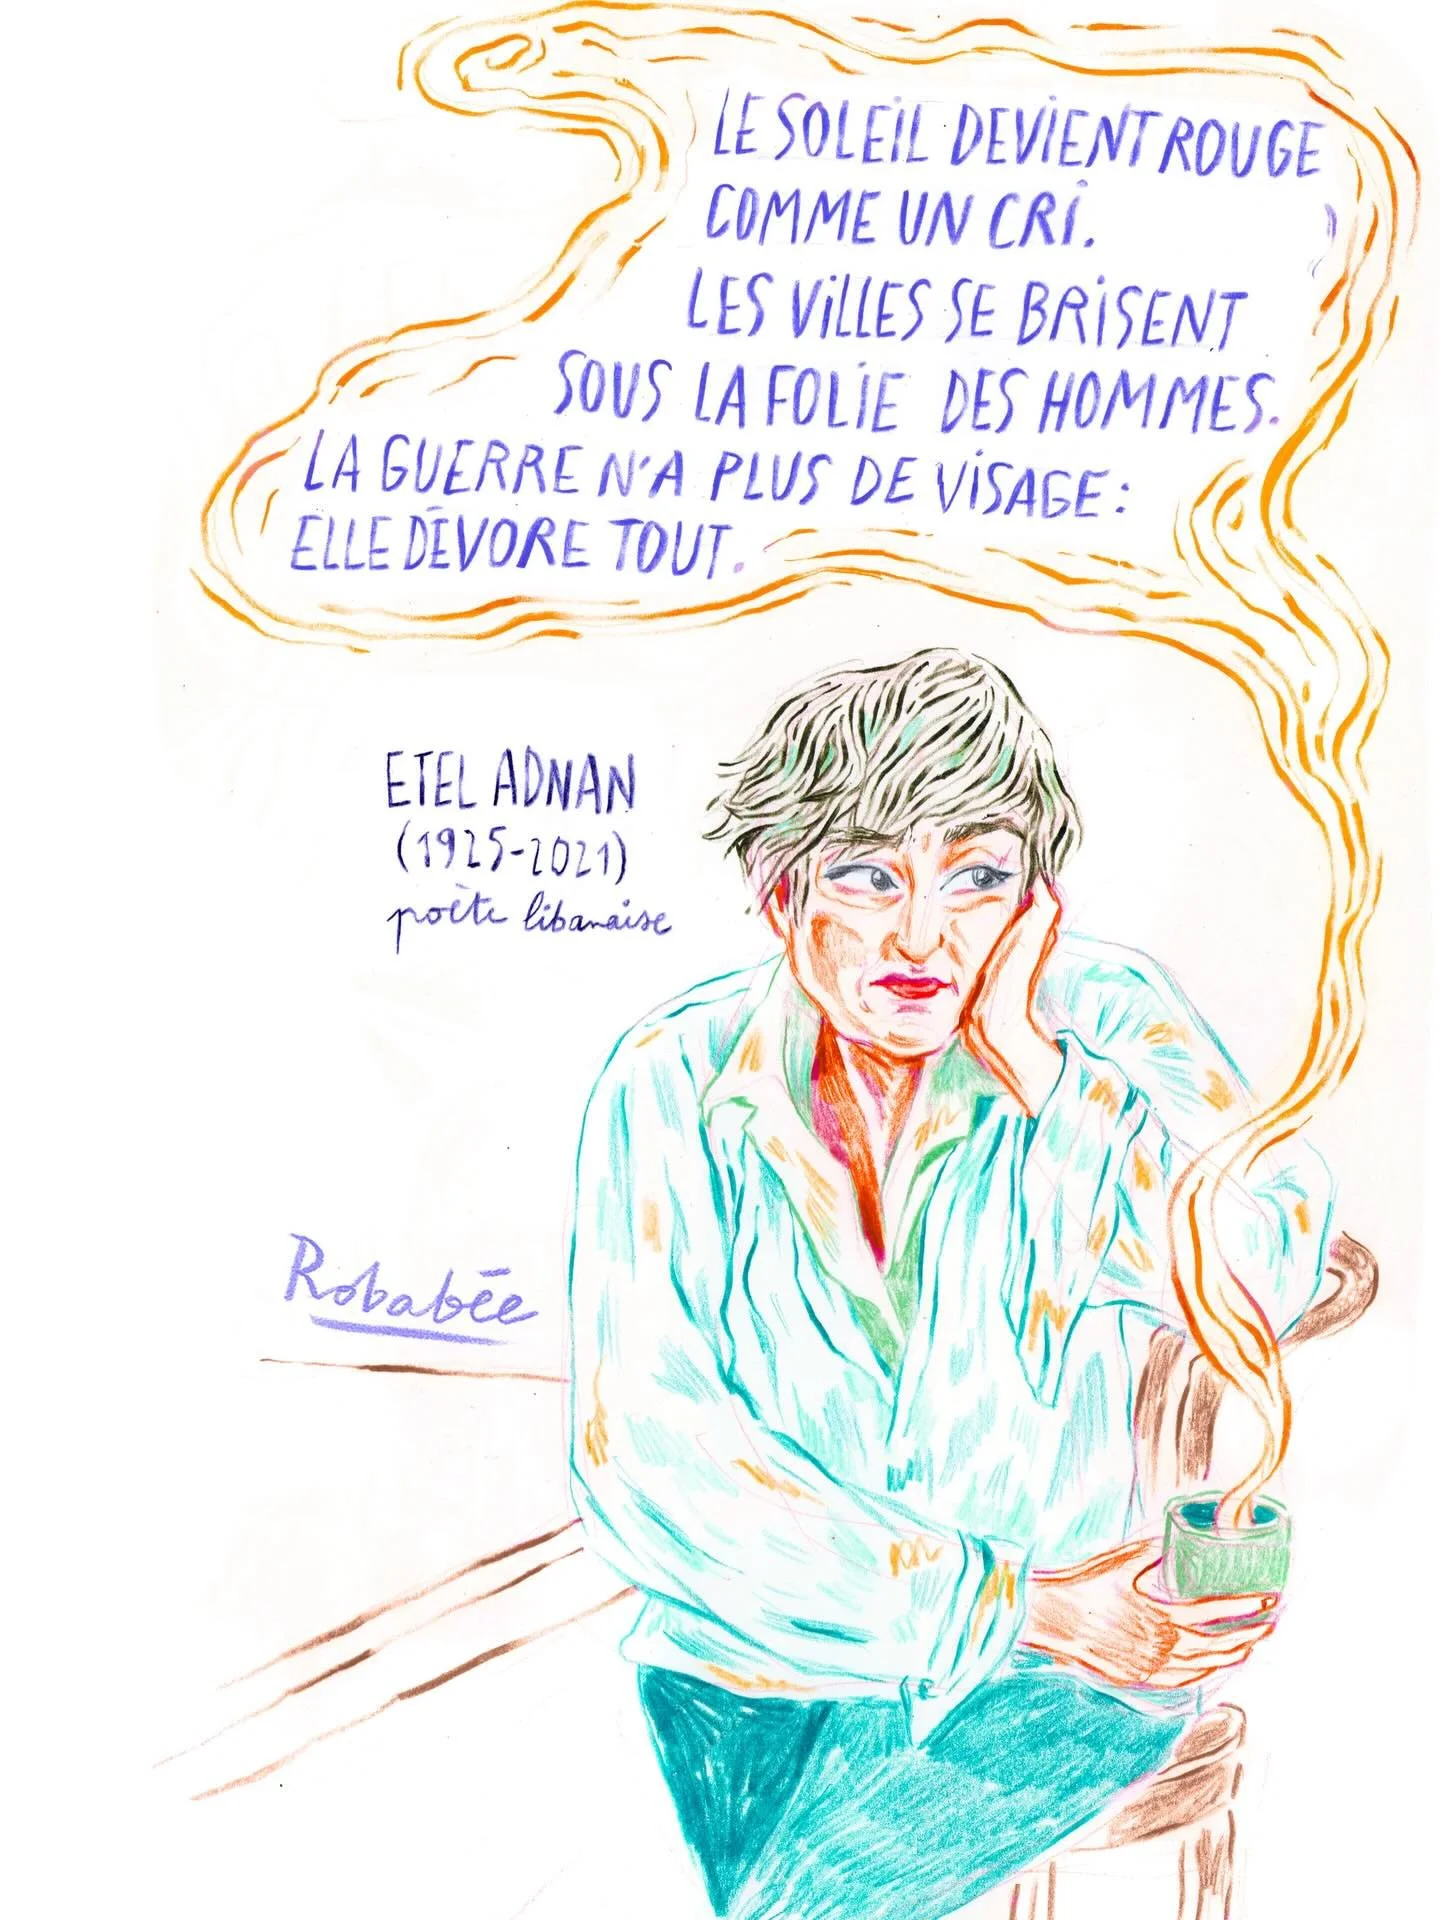 LE SOLEIL DEVIENT ROUGE
COMME UN CRI.
LES VILLES SE BRISENT
SOUS LA FOLIE DES HOMMES.
LA GUERRE N'A PLUS DE VISAGE :
ELLE DÉVORE TOUT.
ETEL ADNAN
(1925-2021)
poète libanaise
Robabée